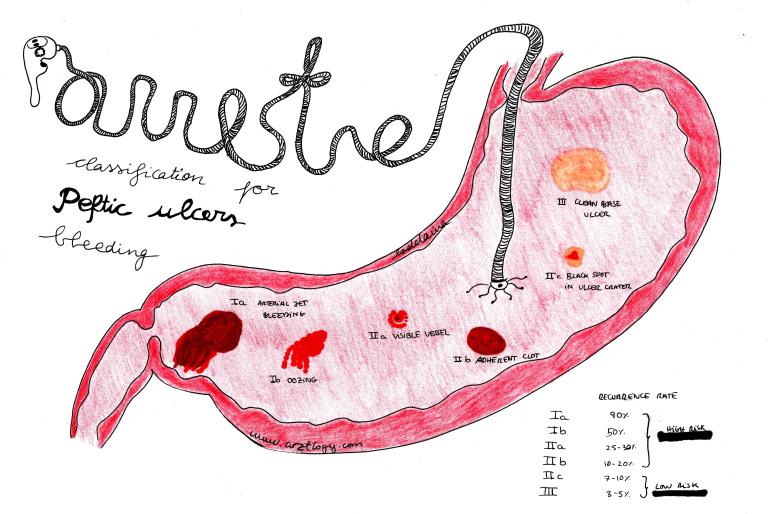 classification for
Peptic ulcers
bleeding
III CLEAN BASE
ULCER
IIc BLACK SPOT
IN ULCER CRATER
Ia ARTERIAL JET
BLEEDING
IIa VISIBLE VESSEL
IIb ADHERENT CLOT
Ib OOZING
www.arztlogy.com
RECURRENCE RATE
Ia 90%
Ib 50% HIGH RISK
IIa 25-30%
IIb 10-20%
IIc 7-10% LOW RISK
III 3-5%